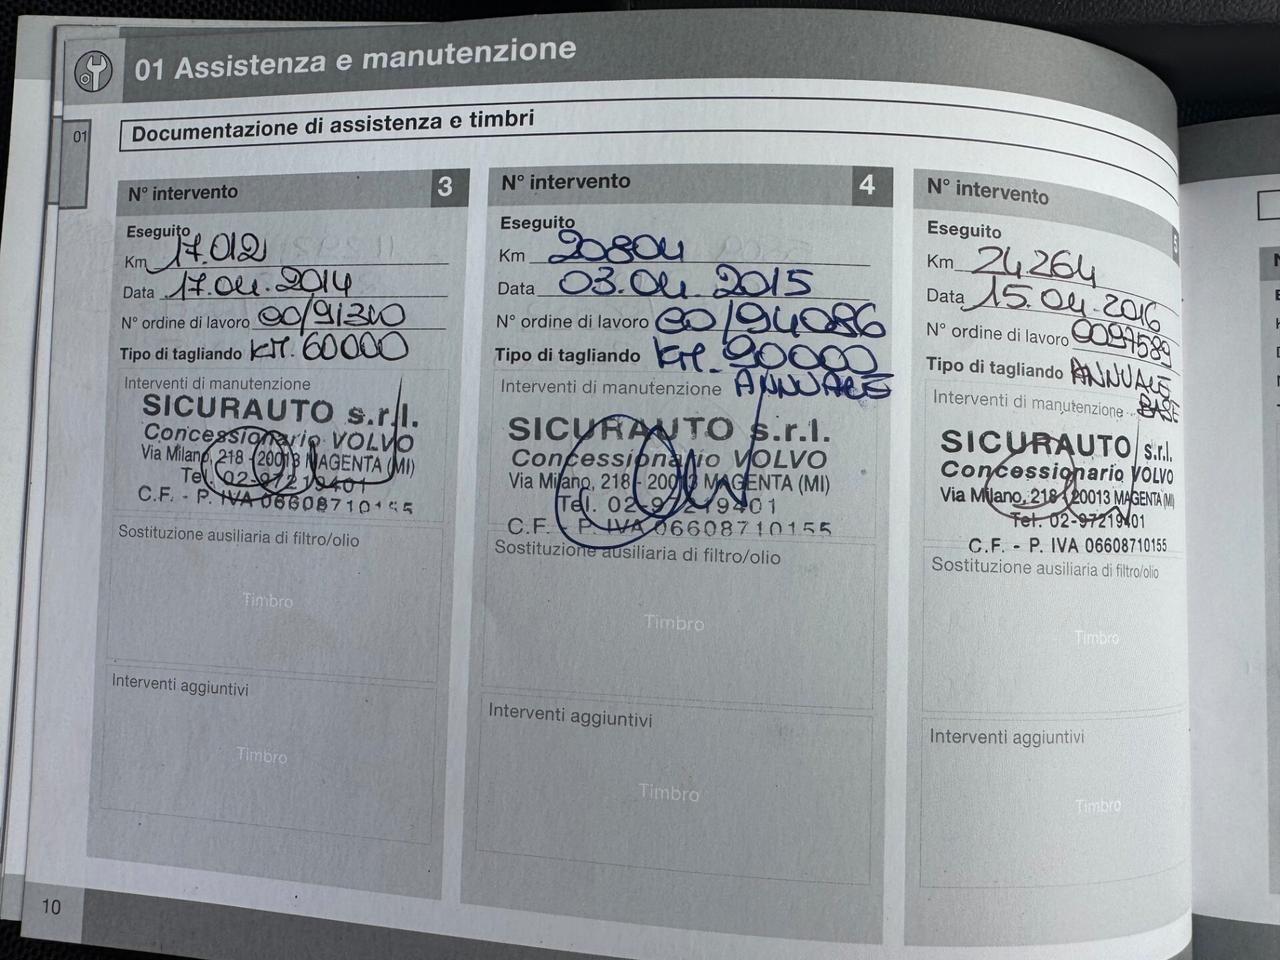 01 Assistenza e manutenzione
01
Documentazione di assistenza e timbri
N° intervento 3
Eseguito
Km 17.012
Data 17.04.2014
N° ordine di lavoro 00/91310
Tipo di tagliando KM. 60000
Interventi di manutenzione
SICURAUTO s.r.l.
Concessionario VOLVO
Via Milano, 218 - 20013 MAGENTA (MI)
Tel. 02-97219401
C.F. - P. IVA 06608710155
Sostituzione ausiliaria di filtro/olio
Timbro
Interventi aggiuntivi
Timbro
N° intervento 4
Eseguito
Km 20804
Data 03.04.2015
N° ordine di lavoro 00/94086
Tipo di tagliando KM. 90000
Interventi di manutenzione ANNUALE
SICURAUTO s.r.l.
Concessionario VOLVO
Via Milano, 218 - 20013 MAGENTA (MI)
Tel. 02-97219401
C.F. - P. IVA 06608710155
Sostituzione ausiliaria di filtro/olio
Timbro
Interventi aggiuntivi
Timbro
N° intervento 5
Eseguito
Km 24.264
Data 15.04.2016
N° ordine di lavoro 0097589
Tipo di tagliando ANNUALE
Interventi di manutenzione BASE
SICURAUTO s.r.l.
Concessionario VOLVO
Via Milano, 218 - 20013 MAGENTA (MI)
Tel. 02-97219401
C.F. - P. IVA 06608710155
Sostituzione ausiliaria di filtro/olio
Timbro
Interventi aggiuntivi
Timbro
10